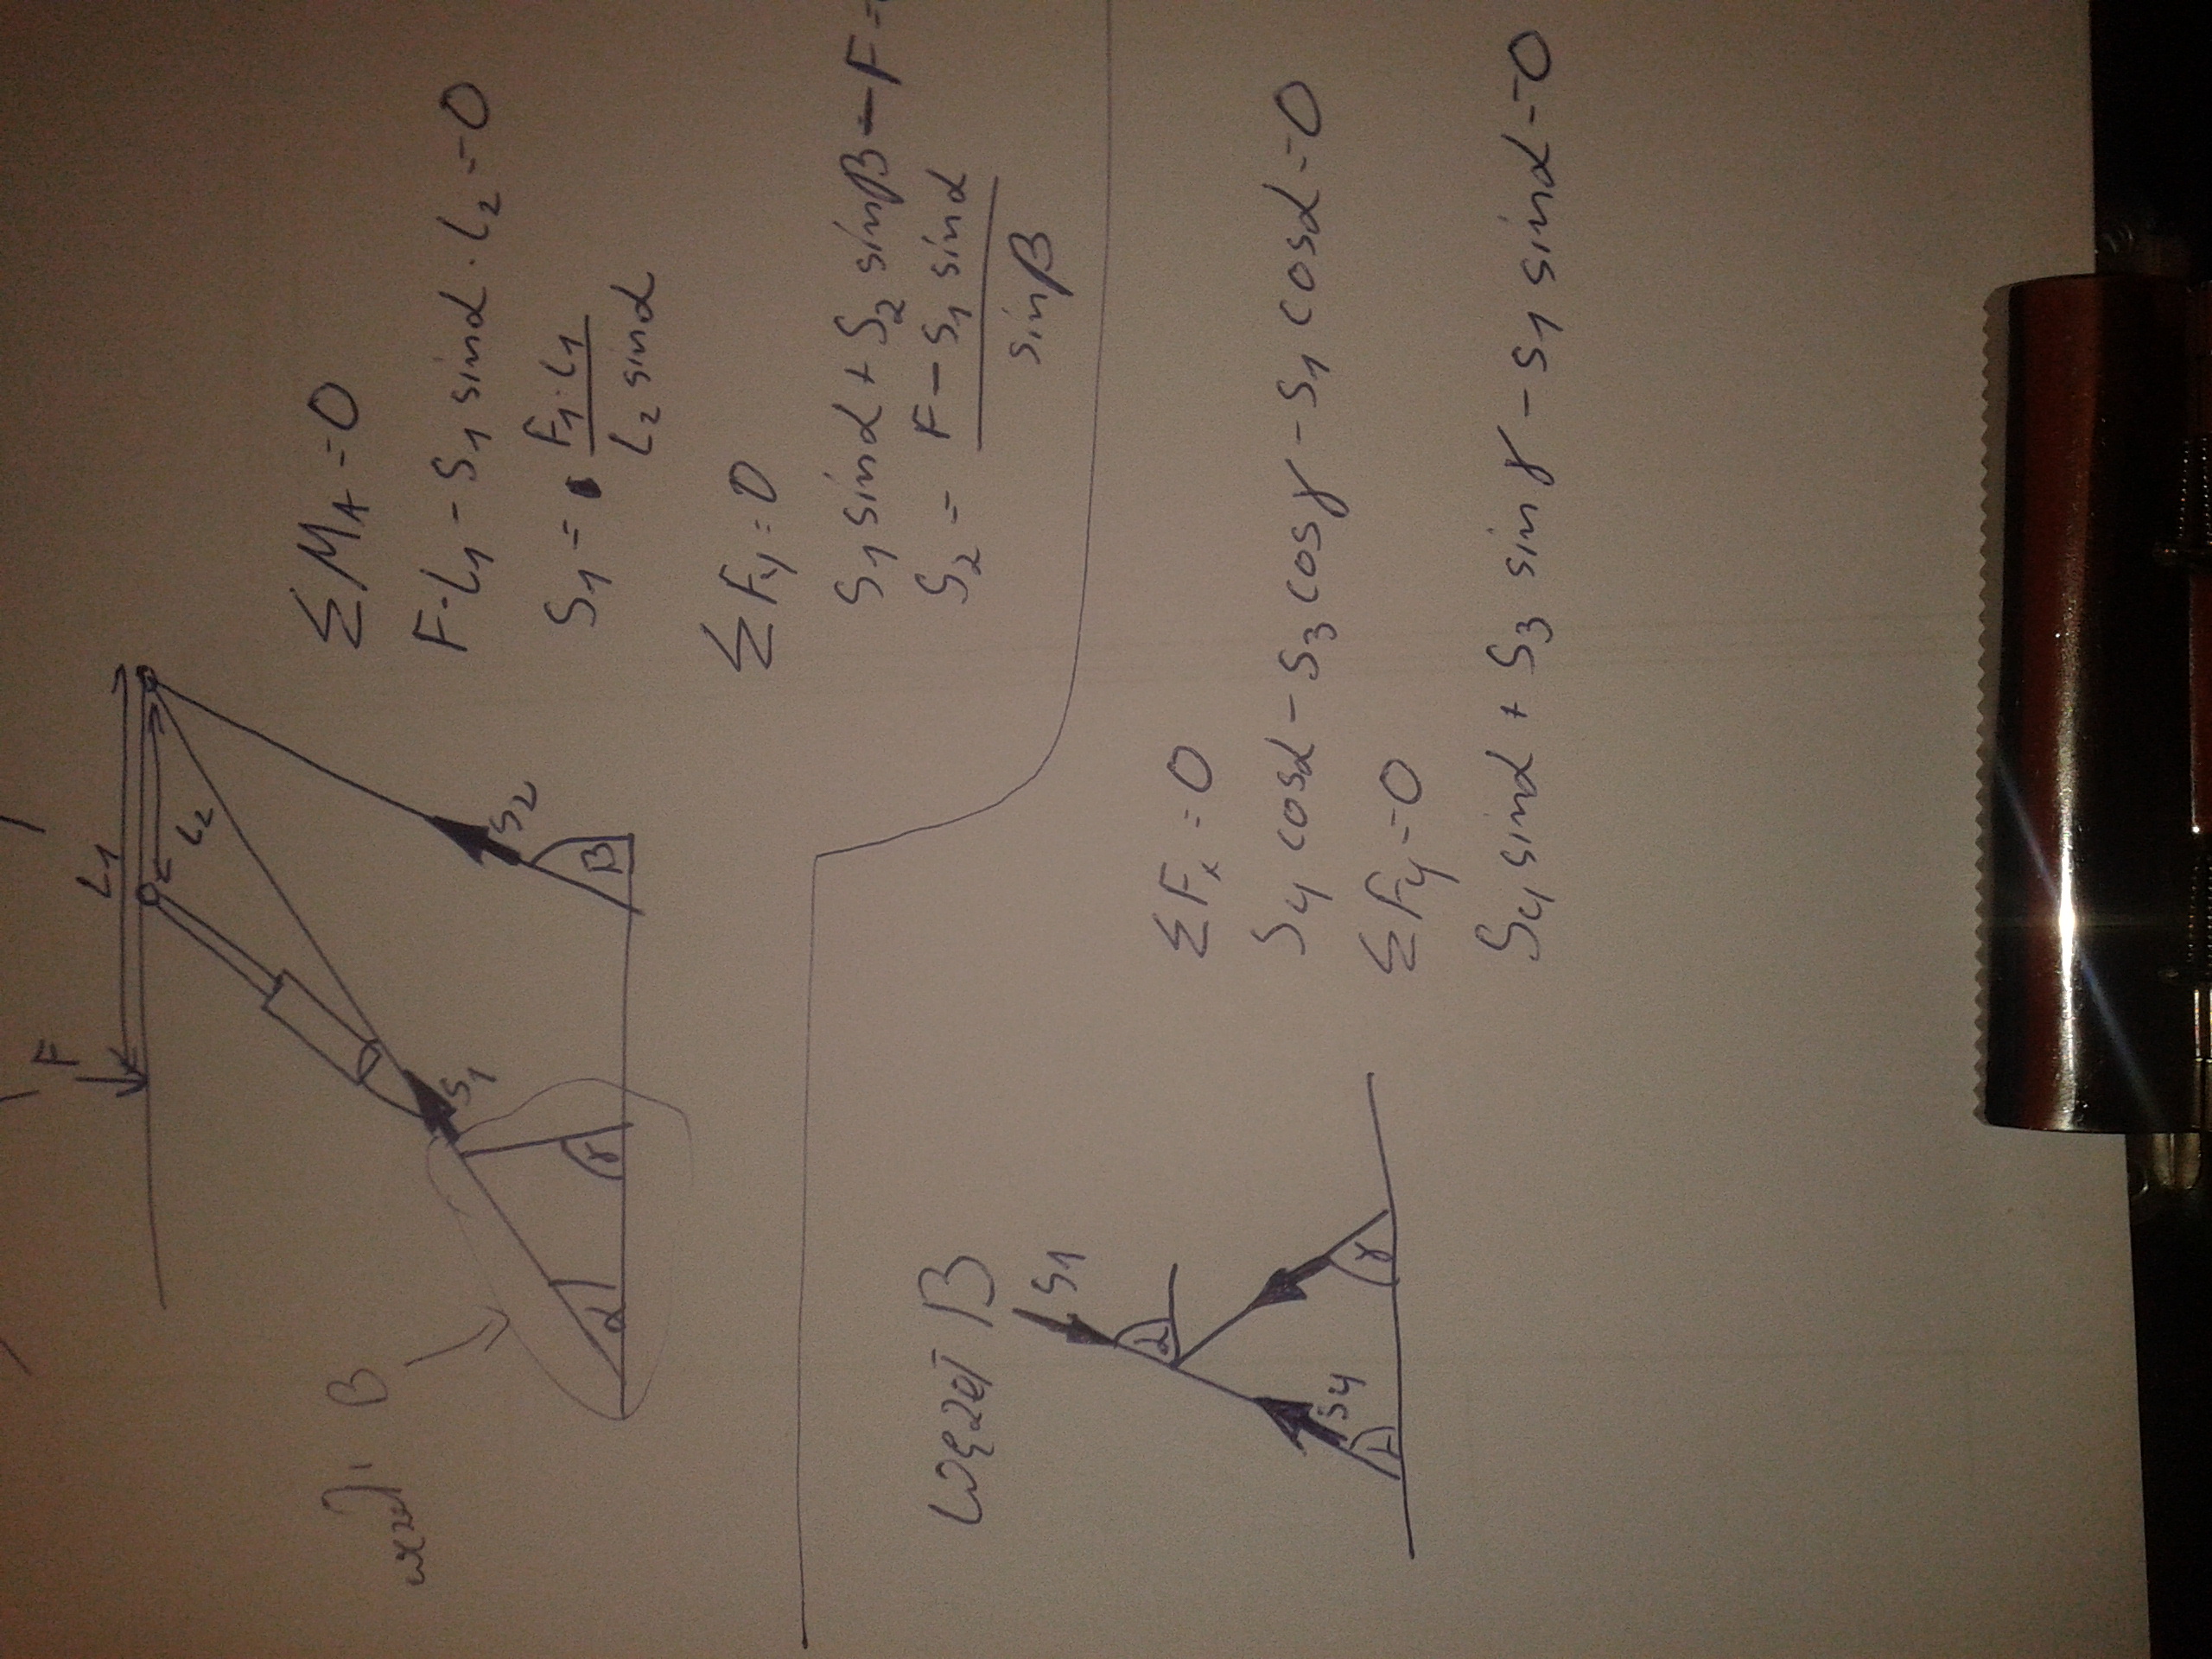 F
L1
L2
S1
S2
α
γ
β
węzeł B
ΣMA=0
F·L1-S1 sinα·L2=0
S1= F1·L1 / L2 sinα
ΣFy=0
S1 sinα+S2 sinβ-F=
S2= F-S1 sinα / sinβ
węzeł B
S1
α
S4
γ
ΣFx=0
S4 cosα-S3 cosγ-S1 cosα=0
ΣFy=0
S4 sinα+S3 sinγ-S1 sinα=0